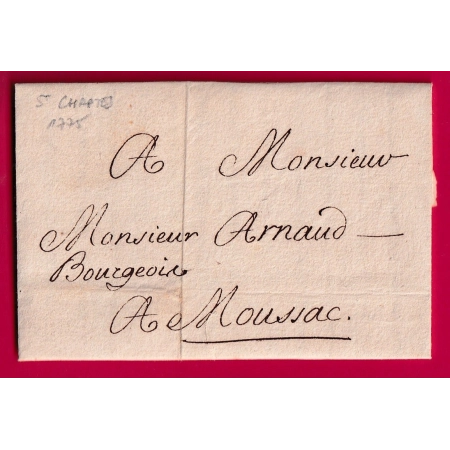 St CHAPTES
1775
A Monsieur
Monsieur Arnaud
Bourgeois
A Moussac.